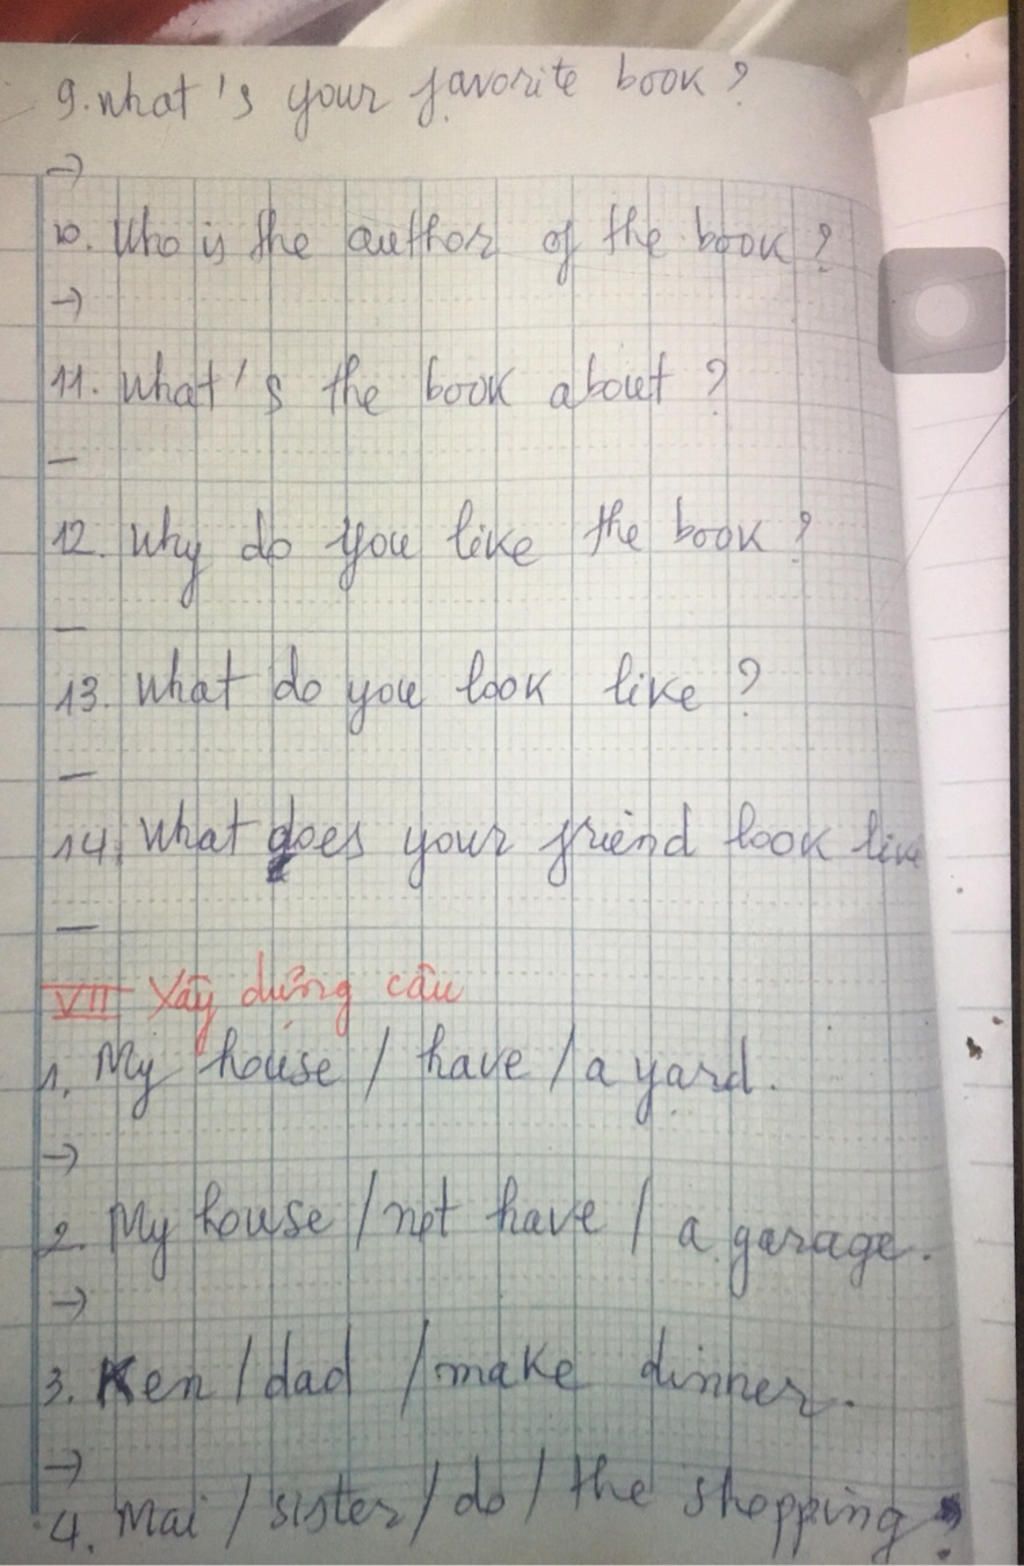 9. What's your favorite book?
→
10. Who is the author of the book?
→
11. What's the book about?
–
12. Why do you like the book?
–
13. What do you look like?
–
14. What does your friend look like
–
VII Xây dựng câu
1. My house / have / a yard.
→
2. My house / not have / a garage.
→
3. Ken / dad / make dinner.
→
4. Mai / sister / do / the shopping?